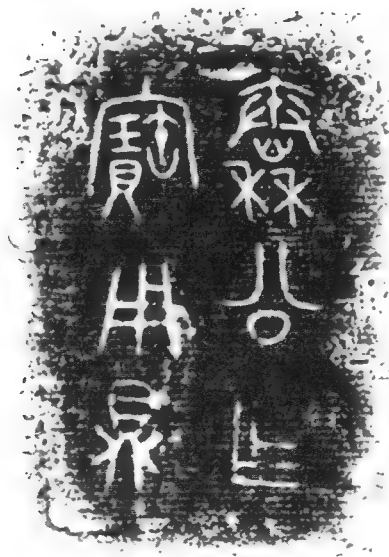 秦公乍
寶用鼎